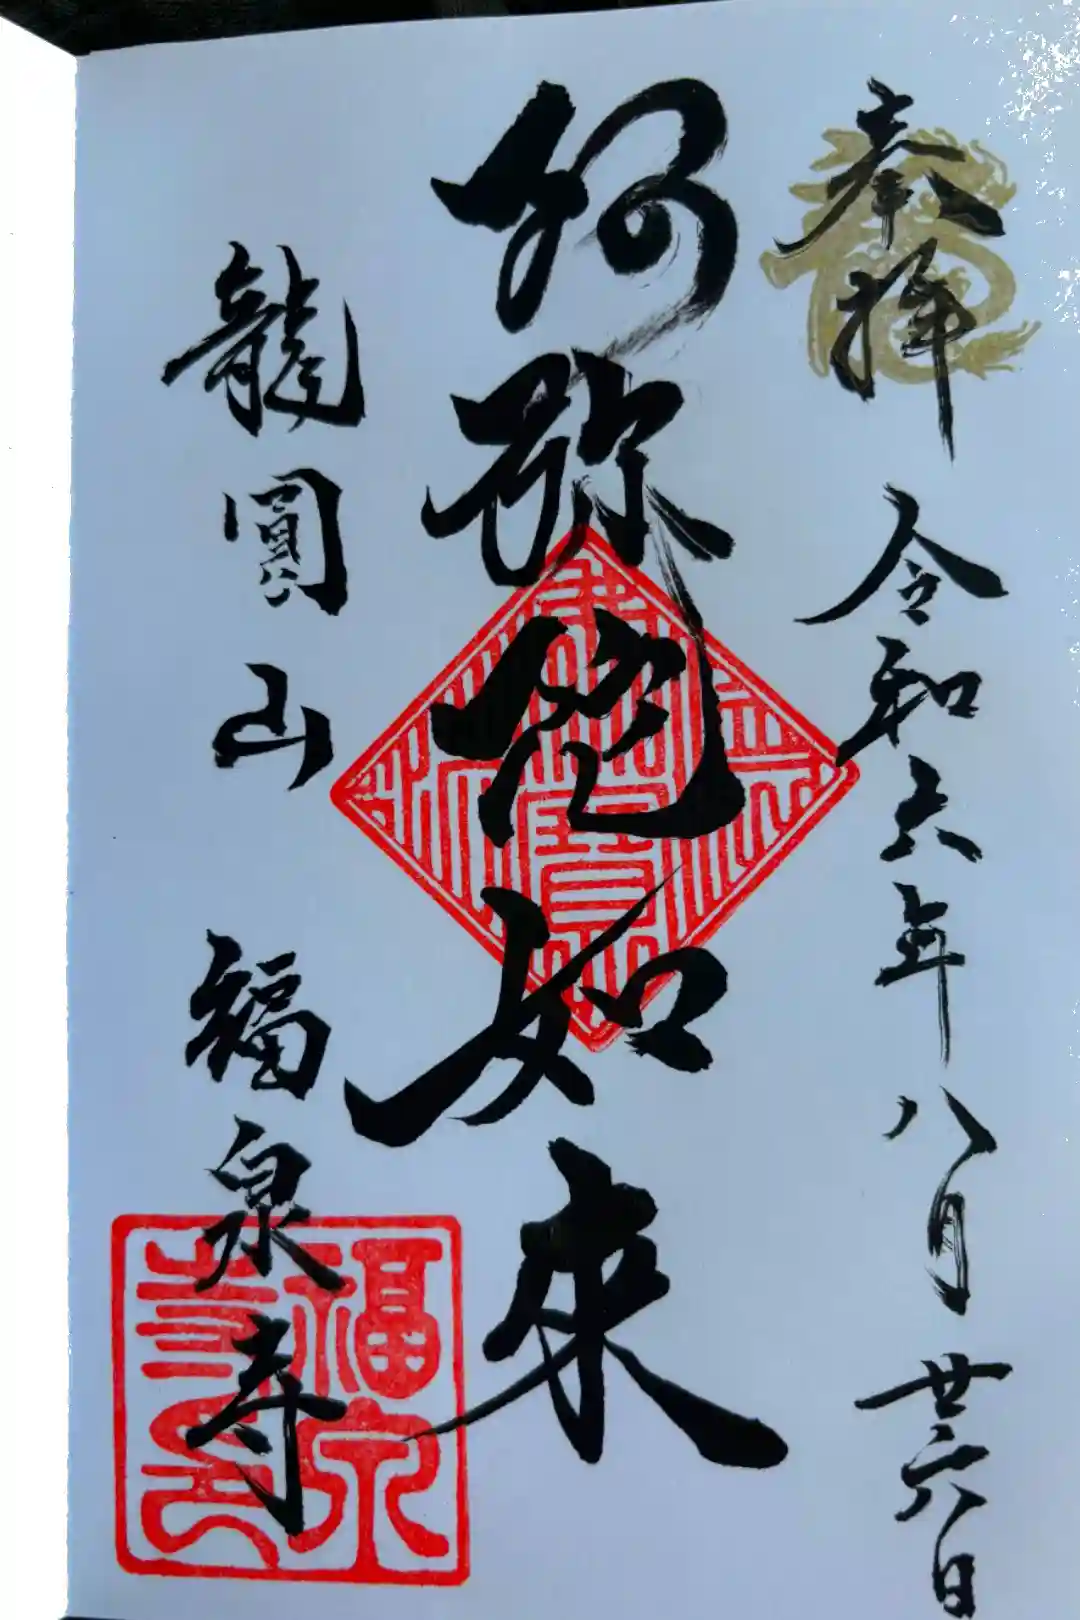 奉拝
令和六年八月廿六日
阿弥陀如来
龍圓山
福泉寺
福泉寺印